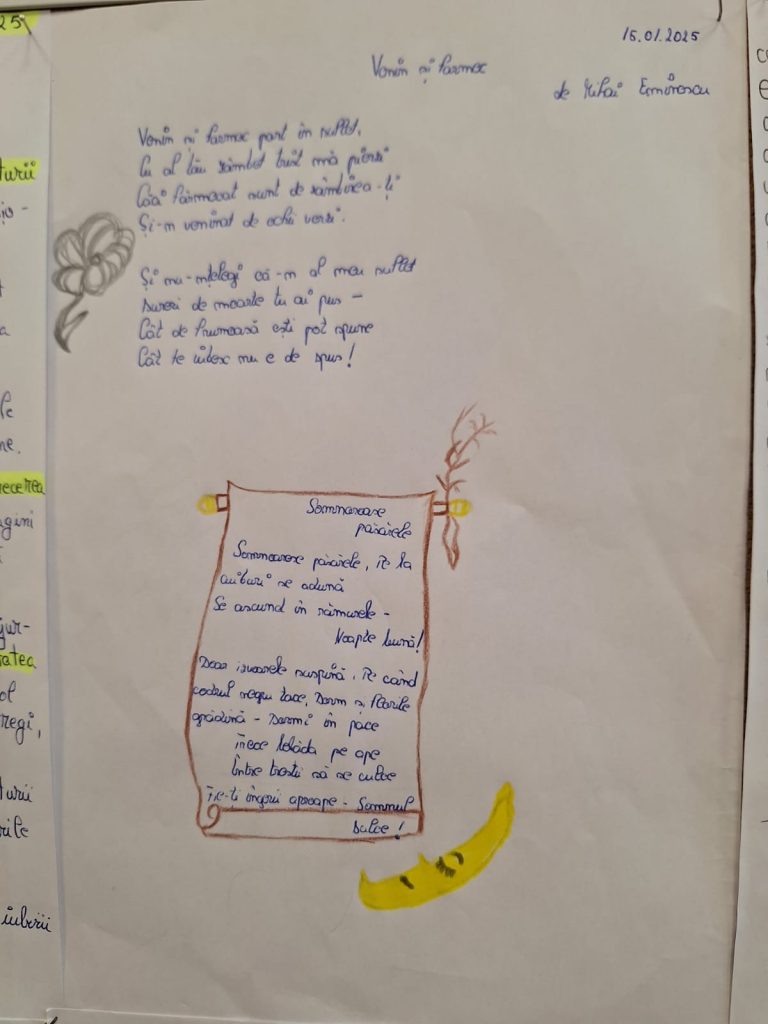 25
turii
ție -
a
le
ne.
recerea
agini
gur-
atea
ol
regi,
turii
rile
iubirii
15.01.2025
Venin și farmec
de Mihai Eminescu
Venin și farmec port în suflet,
Cu al tău zâmbet trist mă pierzi
Căci fărmecat sunt de zâmbirea-ți
Și-n veninat de ochii verzi.
Și nu-nțelegi că-n al meu suflet
Dureri de moarte tu ai pus -
Cât de frumoasă ești pot spune
Cât te iubesc nu e de spus!
Somnoroase
păsărele
Somnoroase păsărele, Pe la
cuiburi se adună
Se ascund în rămurele -
Noapte bună!
Doar izvoarele suspină, Pe când
codrul negru tace, Dorm și florile
grădină - Dormi în pace
Trece lebăda pe ape
Între trestii să se culce
Fie-ți îngerii aproape - Somnul
Dulce!